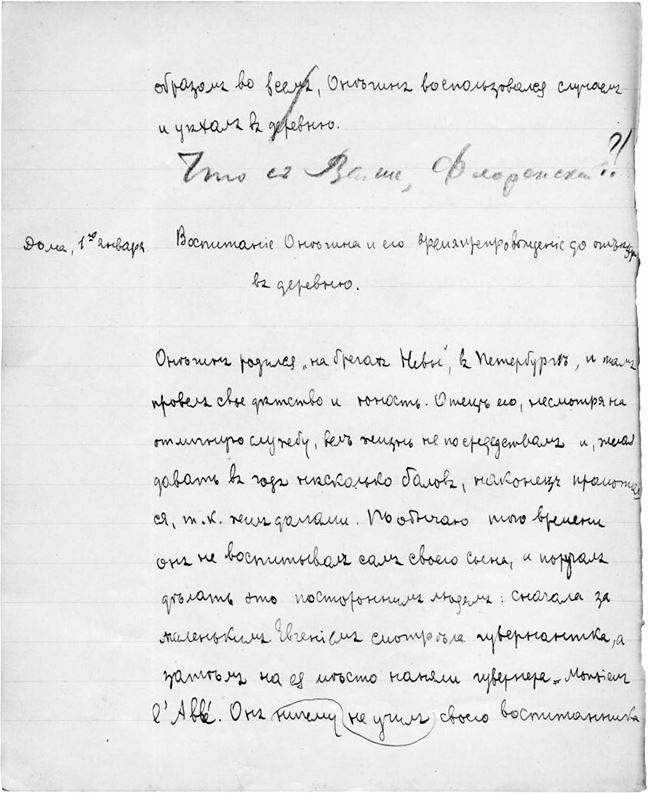 образомъ во всемъ, Онѣгинъ воспользовался случаемъ
и уѣхалъ въ деревню.
Что съ Вами, Флоренскій?!
Дома, 1го января
Воспитаніе Онѣгина и его времяпрепровожденіе до отъѣзда
въ деревню.
Онѣгинъ родился „на брегахъ Невы", въ Петербургѣ, и тамъ
провелъ свое дѣтство и юность. Отецъ его, несмотря на
отличную службу, велъ жизнь не по средствамъ и, желая
давать въ годъ нѣсколько баловъ, наконецъ промотал
ся, т.к. жилъ долгами. По обычаю того времени
онъ не воспитывалъ самъ своего сына, и поручалъ
дѣлать это постороннимъ людямъ: сначала за
маленькимъ Евгеніемъ смотрѣла гувернантка, а
затѣмъ на ея мѣсто наняли гувернера „Monsieur
l'Abbé. Онъ ничему не училъ своего воспитанника